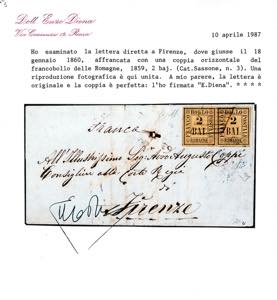 Dott. Enzo Diena
Via Crescenzio 19, Roma
10 aprile 1987
Ho esaminato la lettera diretta a Firenze, dove giunse il 18
gennaio 1860, affrancata con una coppia orizzontale del
francobollo delle Romagne, 1859, 2 baj. (Cat.Sassone, n. 3). Una
riproduzione fotografica è qui unita. A mio parere, la lettera è
originale e la coppia è perfetta: l'ho firmata "E.Diena". * * * *
Franca
BOLLO BOLLO
2 2
BAI BAI
ROMAGNE ROMAGNE
All' Illustrissimo Sig. Avv. Augusto Coppi
Consigliere alla Corte Regia
di
Firenze